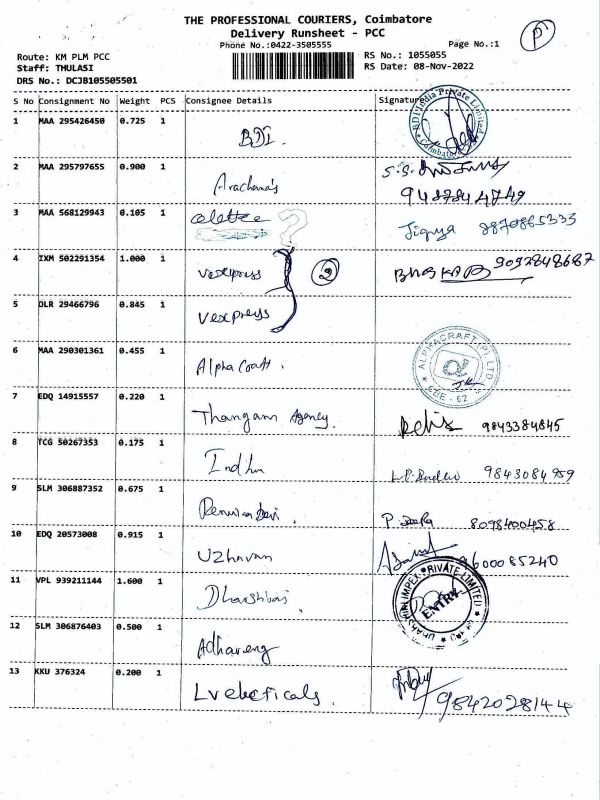 THE PROFESSIONAL COURIERS, Coimbatore
Delivery Runsheet - PCC
Phone No.:0422-3505555
Page No.:1
P
Route: KM PLM PCC
RS No.: 1055055
Staff: THULASI
RS Date: 08-Nov-2022
DRS No.: DCJB105505501
S No Consignment No Weight PCS Consignee Details Signature
1 MAA 295426450 0.725 1 BDI. BDI India Private Limited Coimbatore
2 MAA 295797655 0.900 1 Arachana's
3 MAA 568129943 0.105 1 Jignya 8870865333
4 IXM 502291354 1.000 1 vexpress 2 BHASKAR 9092848687
5 DLR 29466796 0.845 1 vexpress
6 MAA 290301361 0.455 1 Alpha Craft. ALPHACRAFT (P) LTD CBE - 62
7 EDQ 14915557 0.220 1 Thangam Agency. 9843384845
8 TCG 50267353 0.175 1 9843084959
9 SLM 306887352 0.675 1 8098400458
10 EDQ 20573008 0.915 1 Uzhavan 9600085240
11 VPL 939211144 1.600 1 IMPEX PRIVATE LIMITED ENTRY
12 SLM 306876403 0.500 1
13 KKU 376324 0.200 1 9842028144